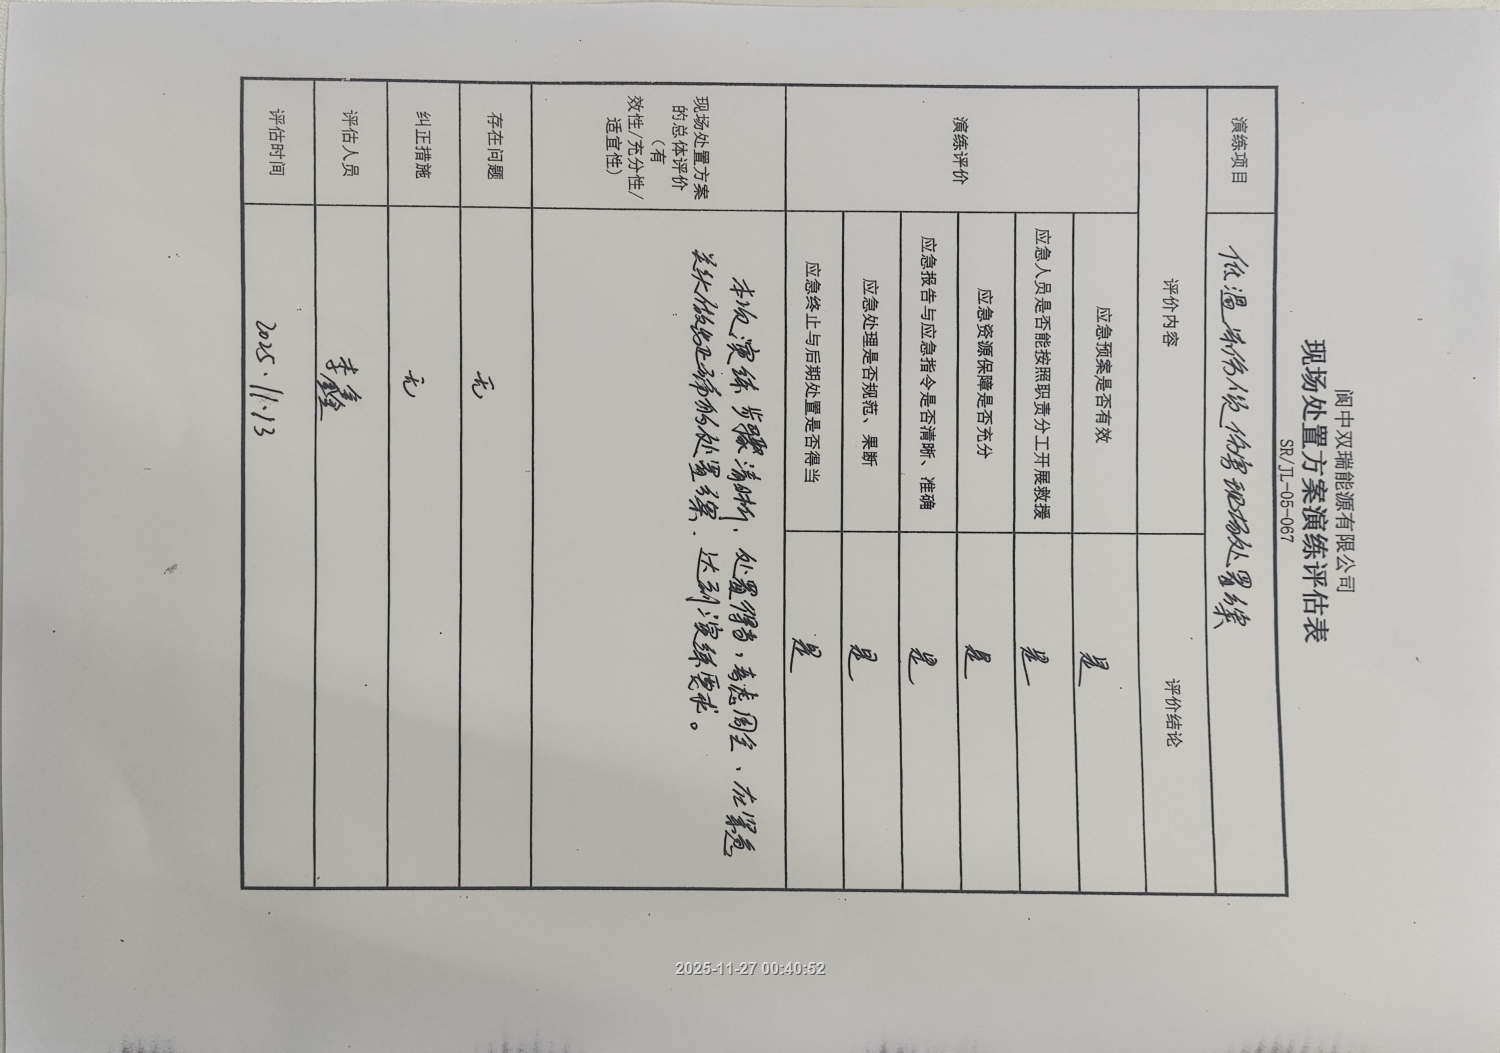 阆中双瑞能源有限公司
现场处置方案演练评估表
SR/JL-05-067
演练项目
低温冻伤人员伤害现场处置方案
评价内容
评价结论
演练评价
应急预案是否有效
是
应急人员是否能按照职责分工开展救援
是
应急资源保障是否充分
是
应急报告与应急指令是否清晰、准确
是
应急处理是否规范、果断
是
应急终止与后期处置是否得当
是
现场处置方案
的总体评价
（有
效性/充分性/
适宜性）
本次演练步骤清晰、处置得当，考虑周全、在紧急
关头做出正确的处置方案、达到演练要求。
存在问题
无
纠正措施
无
评估人员
李鑫
评估时间
2025.11.13
2025-11-27 00:40:52